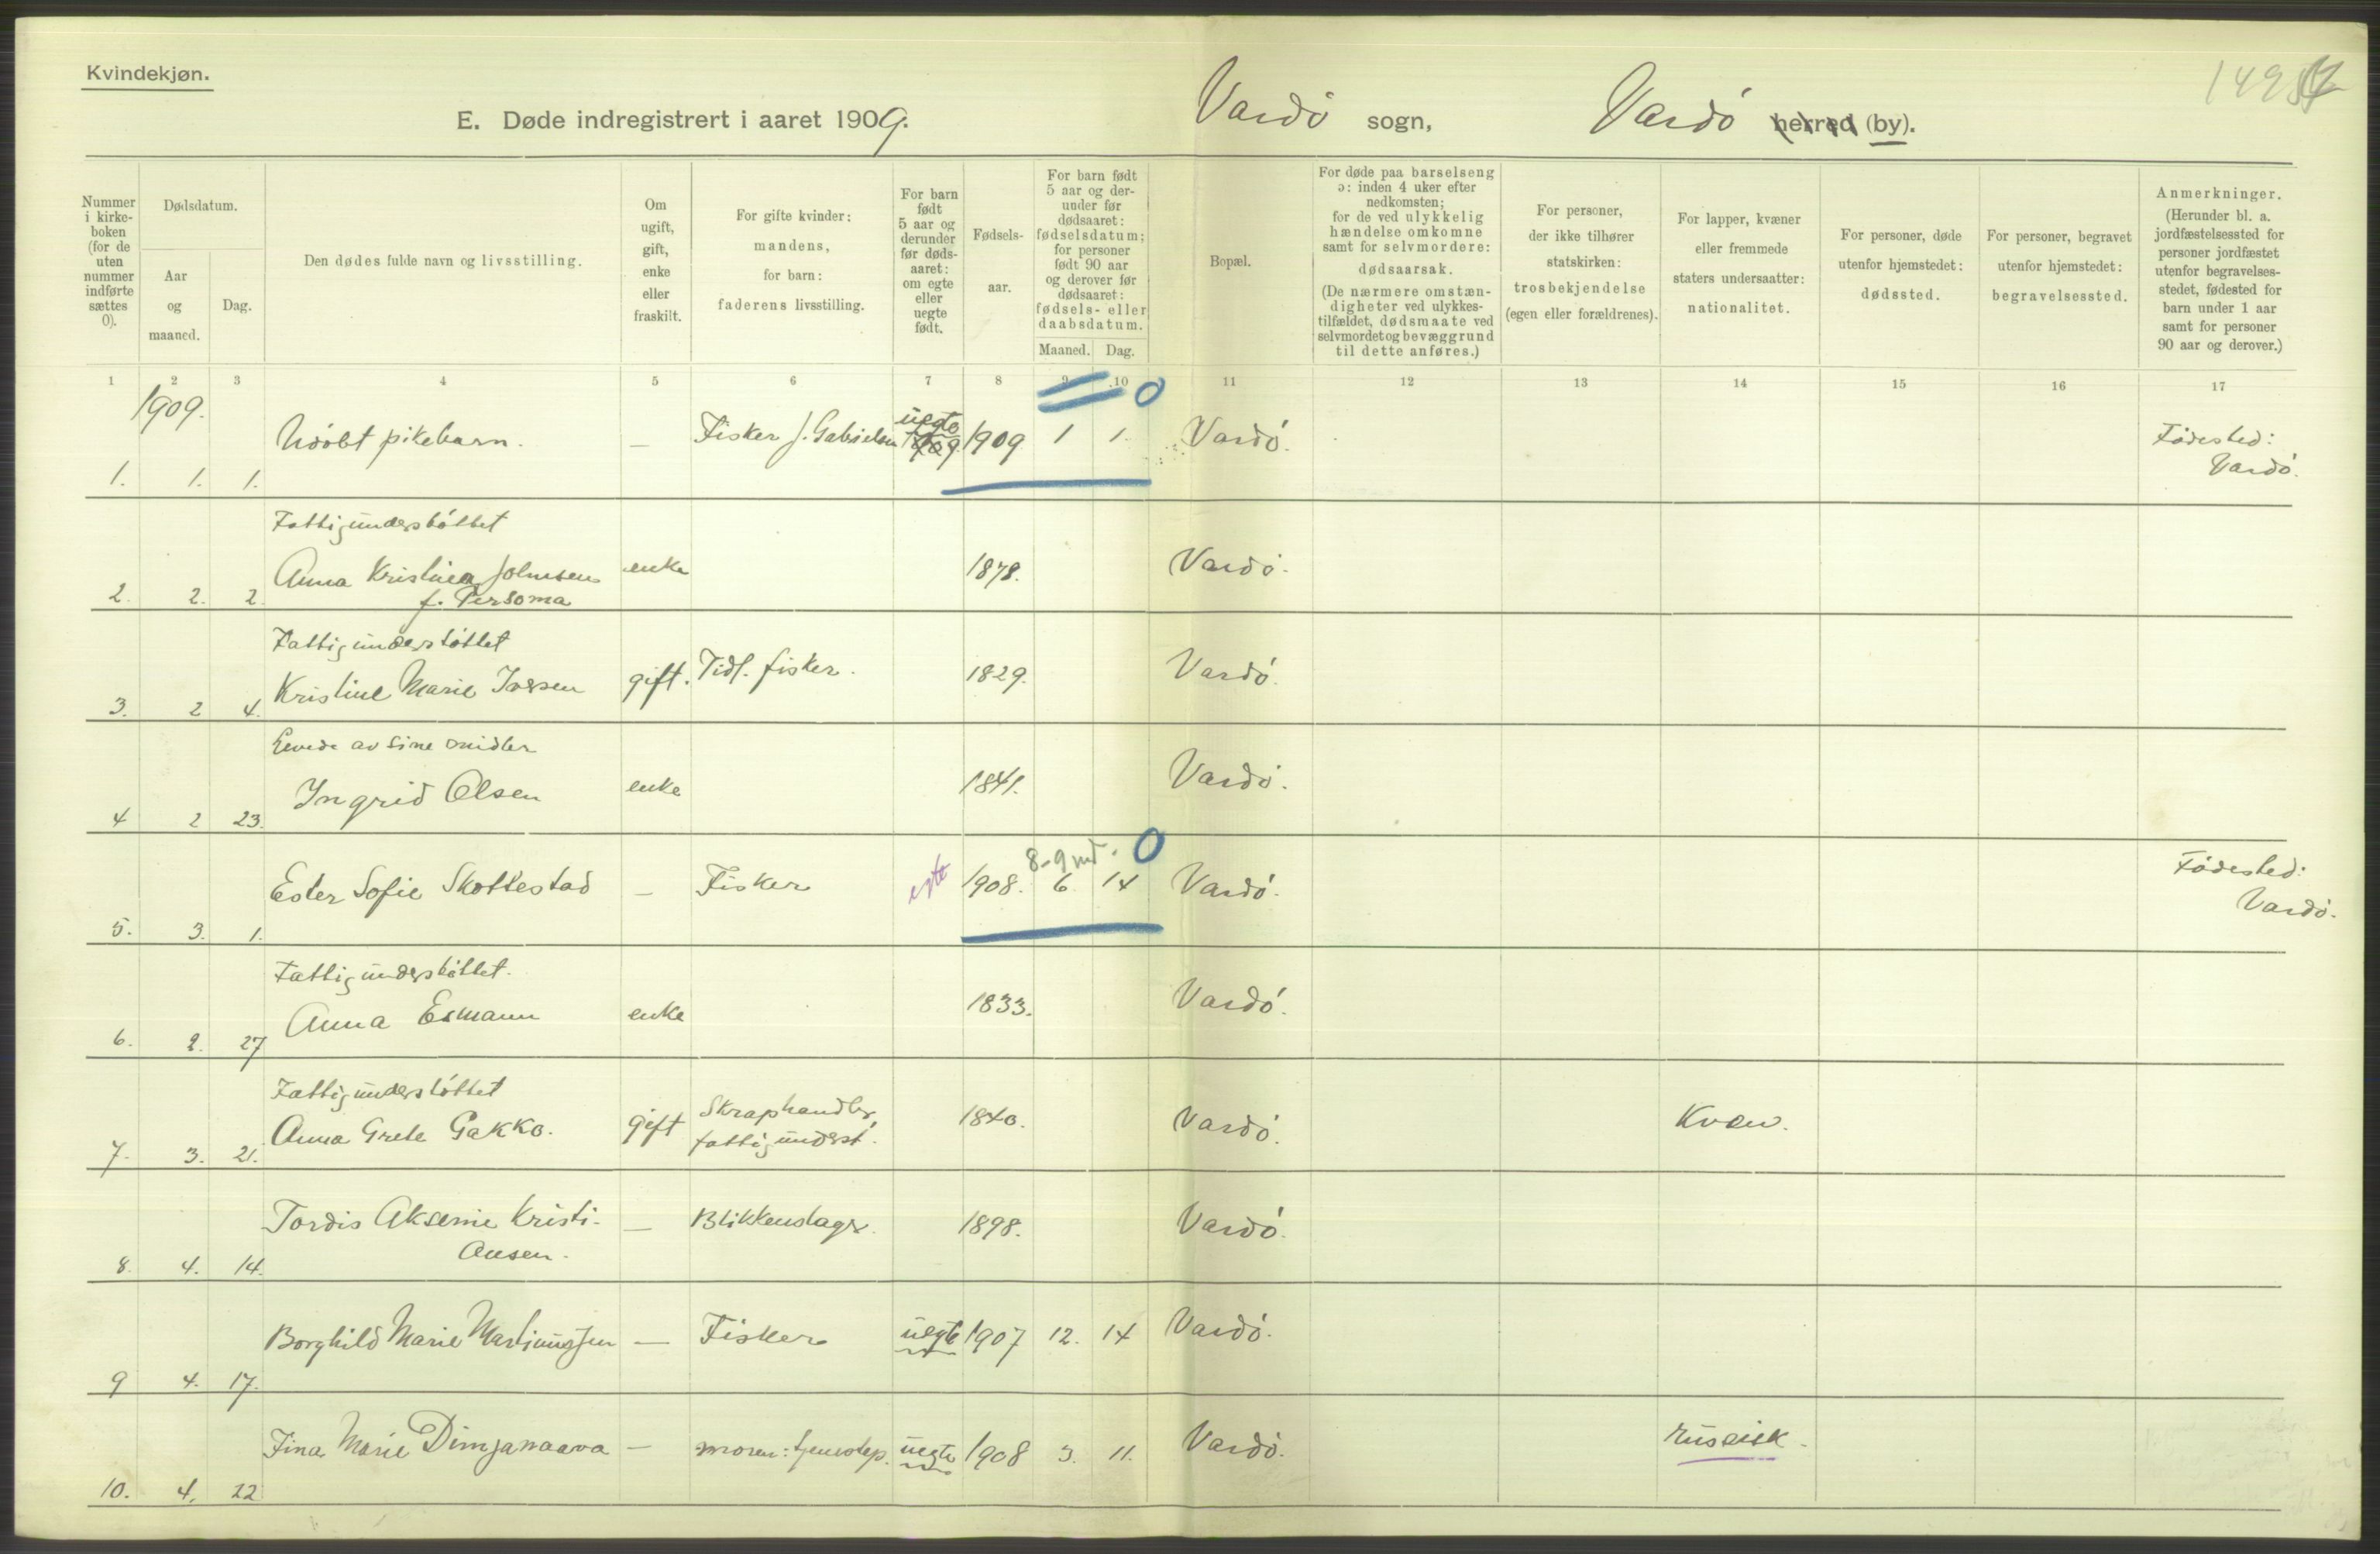 Kvindekjøn.
E. Døde indregistrert i aaret 1909. Vardö sogn, Vardö herred (by).
Nummer i kirke-boken (for de uten nummer indførte sættes 0).
Dødsdatum.
Aar og maaned.
Dag.
Den dødes fulde navn og livsstilling.
Om ugift, gift, enke eller fraskilt.
For gifte kvinder: mandens, for barn: faderens livsstilling.
For barn født 5 aar og derunder før døds-aaret: om egte eller uegte født.
Fødsels-aar.
For barn født 5 aar og der-under før dødsaaret: fødselsdatum; for personer født 90 aar og derover før dødsaaret: fødsels- eller daabsdatum.
Maaned. Dag.
Bopæl.
For døde paa barselseng ɔ: inden 4 uker efter nedkomsten; for de ved ulykkelig hændelse omkomne samt for selvmordere: dødsaarsak.
(De nærmere omstæn-digheter ved ulykkes-tilfældet, dødsmaate ved selvmordet og bevæggrund til dette anføres.)
For personer, der ikke tilhører statskirken: trosbekjendelse (egen eller forældrenes).
For lapper, kvæner eller fremmede staters undersaatter: nationalitet.
For personer, døde utenfor hjemstedet: dødssted.
For personer, begravet utenfor hjemstedet: begravelsessted.
Anmerkninger.
(Herunder bl. a. jordfæstelsessted for personer jordfæstet utenfor begravelses-stedet, fødested for barn under 1 aar samt for personer 90 aar og derover.)
1 2 3 4 5 6 7 8 9 10 11 12 13 14 15 16 17
1909. 0
1. 1. 1. Udöbt pikebarn. — Fisker J. Gabrielsen uegte 1909 1909 1 1. Vardö. Födested: Vardö.
Fattigunderstöttet
2. 2. 2. Anna Kristina Johnsen f. Persoma enke 1878. Vardö.
Fattigunderstöttet
3. 2 4. Kristine Marie Iversen gift. Tidl. fisker. 1829. Vardö.
Levede av sine midler
4 2 23. Ingrid Olsen enke 1841. Vardö.
8-9 md. 0
5. 3. 1. Ester Sofie Skottestad — Fisker egte 1908. 6 14 Vardö. Födested: Vardö.
Fattigunderstöttet.
6. 2. 27 Anna Esmann enke 1833. Vardö.
Fattigunderstöttet
7. 3. 21. Anna Grete Gakko. gift Skraphandler, fattigunderst. 1840. Vardö. Kvæn.
8. 4. 14. Tordis Aksenie Kristi-ansen. — Blikkenslager 1898. Vardö.
9 4. 17. Borghild Marie Martinussen — Fisker uegte 1907 12. 14 Vardö.
10. 4. 22 Fina Marie Dimjanaava — moren: tjenestep. uegte 1908 3. 11. Vardö. russisk.